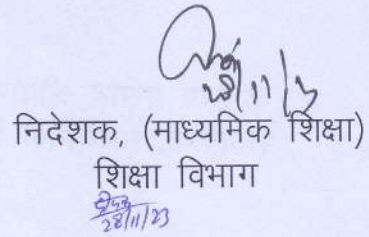 28/11/23
निदेशक, (माध्यमिक शिक्षा)
शिक्षा विभाग
28/11/23